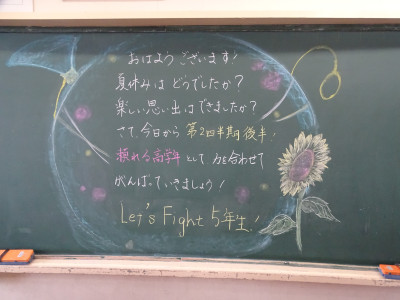 おはようございます!
夏休みはどうでしたか?
楽しい思い出はできましたか?
さて、今日から第2四半期後半!
頼れる高学年として力を合わせて
がんばっていきましょう!
Let's Fight 5年生!